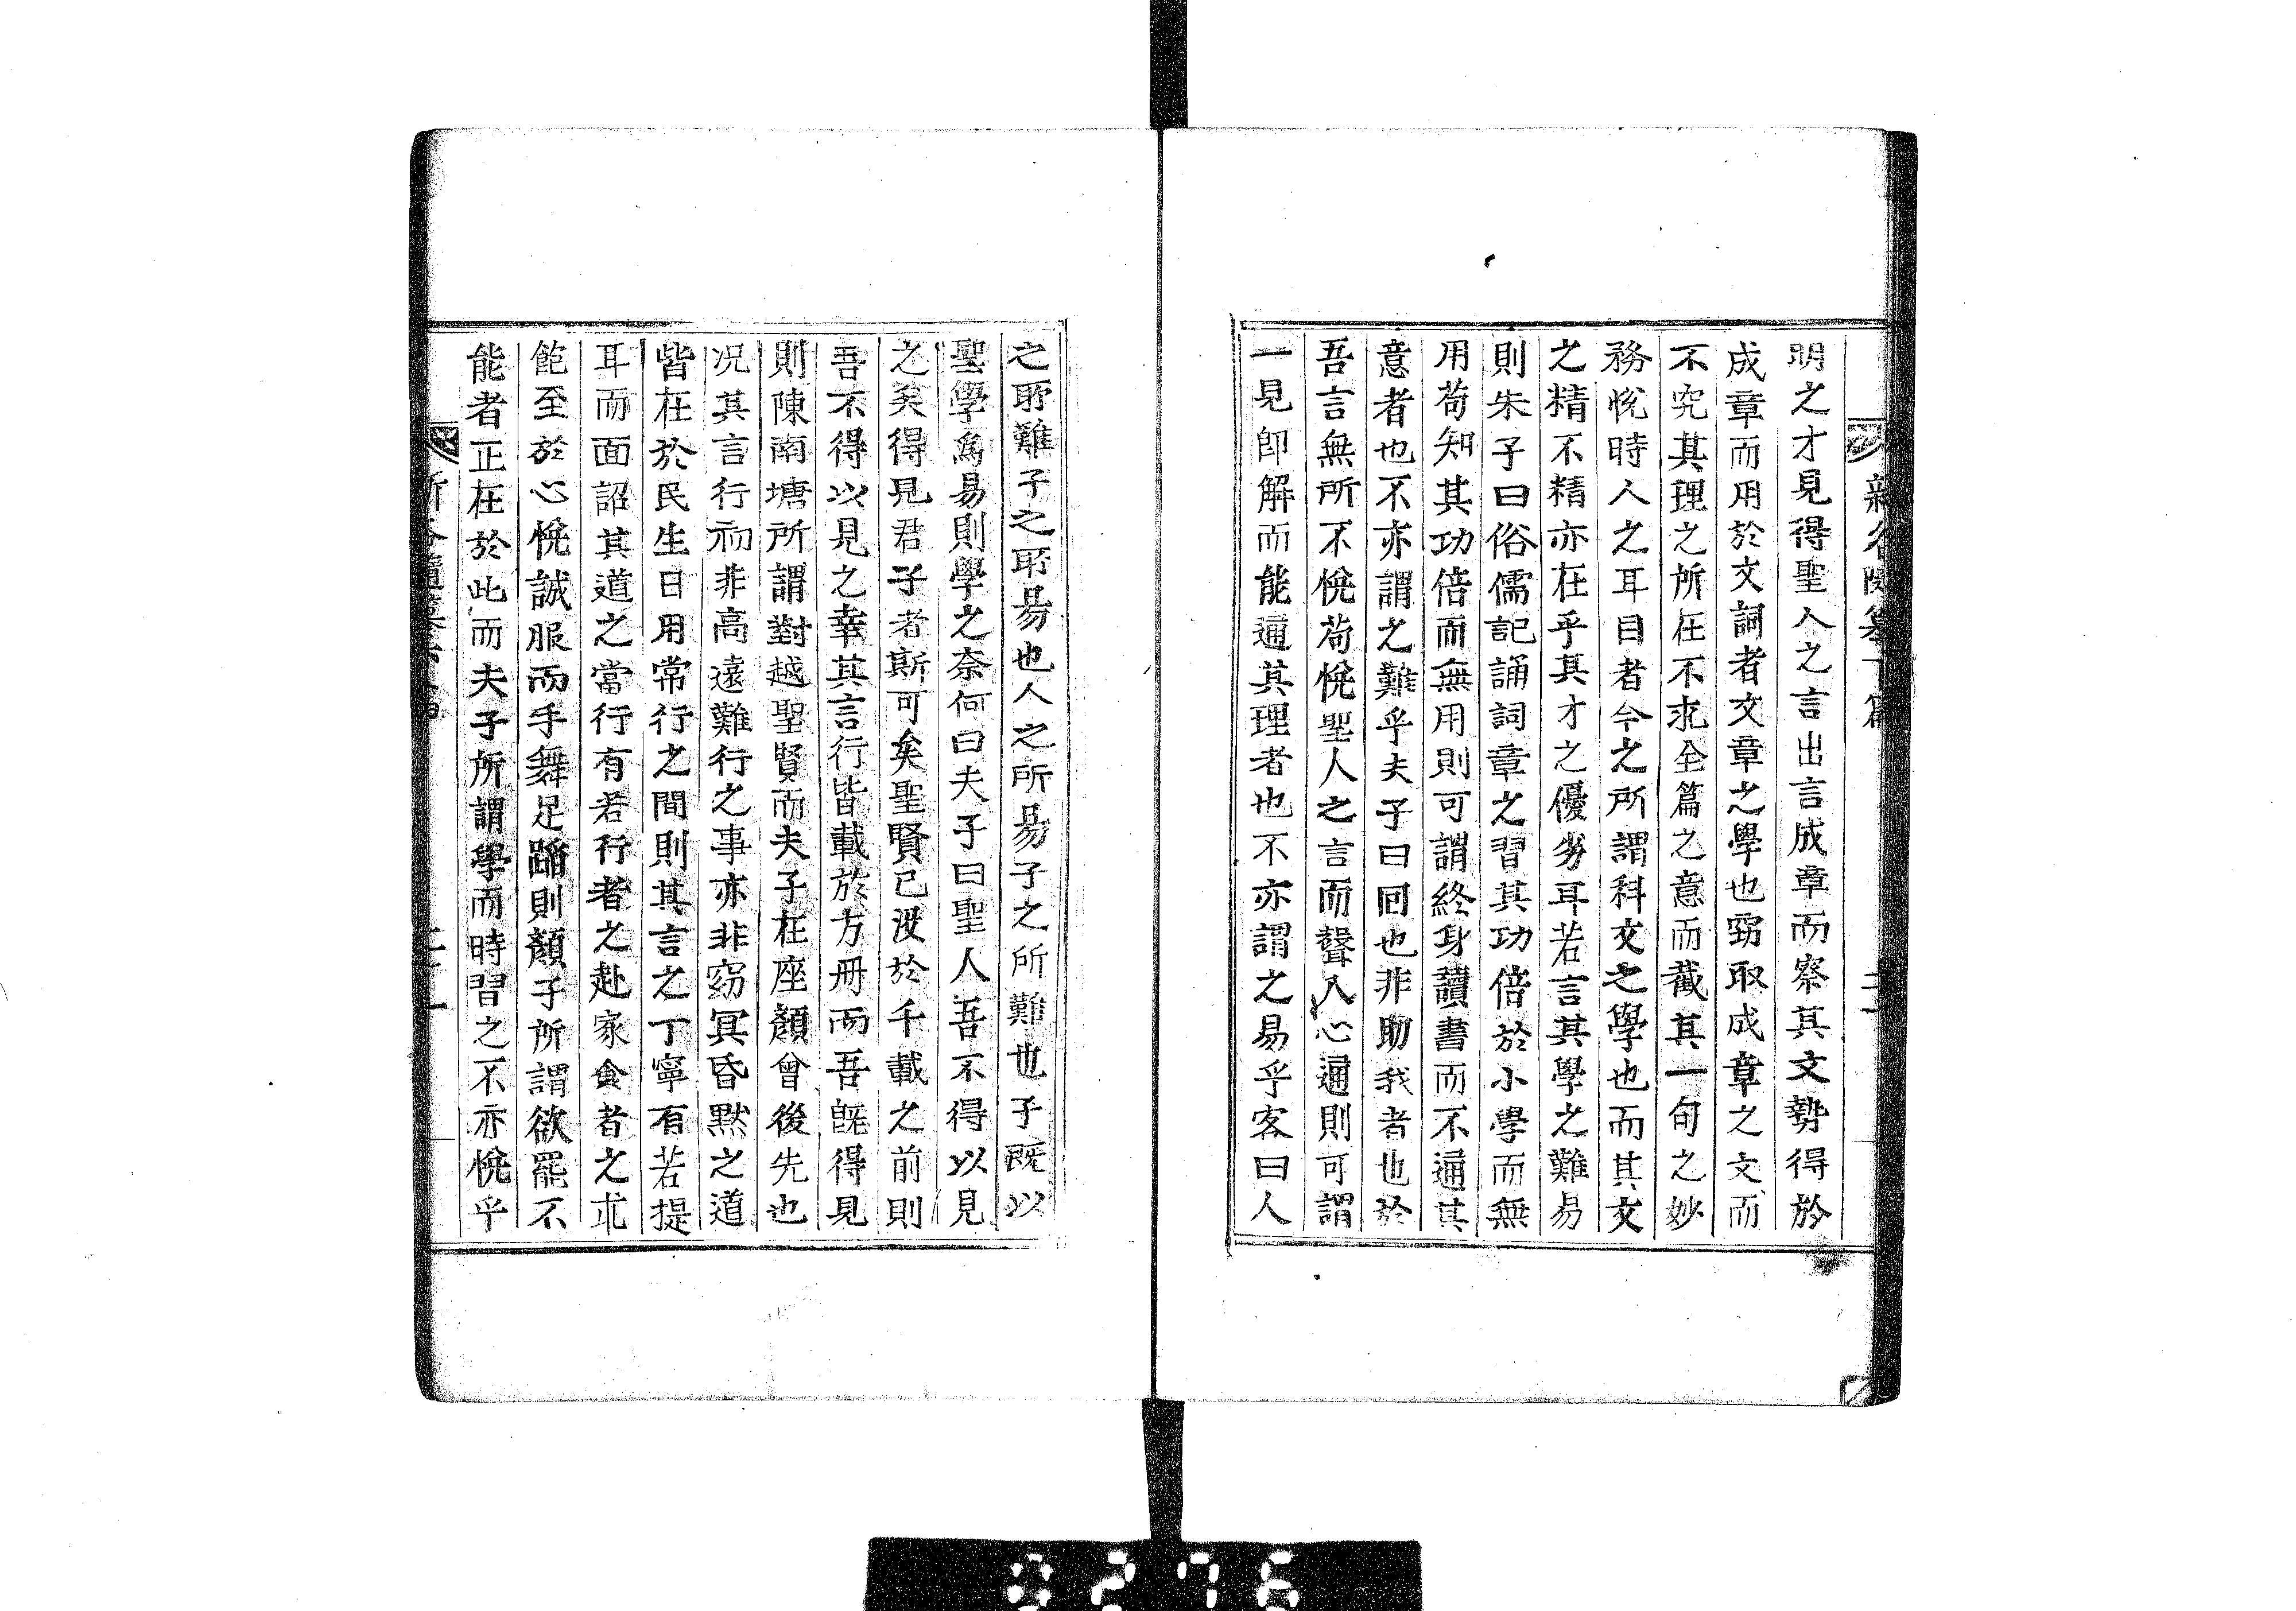 明之才見得聖人之言出言成章而察其文勢得於
成章而用於文詞者文章之學也竊取成章之文而
不究其理之所在不求全篇之意而截其一句之妙
務悅時人之耳目者今之所謂科文之學也而其文
之精不精亦在乎其才之優劣耳若言其學之難易
則朱子曰俗儒記誦詞章之習其功倍於小學而無
用苟知其功倍而無用則可謂終身讀書而不通其
意者也不亦謂之難乎夫子曰回也非助我者也於
吾言無所不悅苟悅聖人之言而聲入心通則可謂
一見即解而能通其理者也不亦謂之易乎客曰人
之所難子之所易也人之所易子之所難也子旣以
聖學爲易則學之奈何曰夫子曰聖人吾不得以見
之矣得見君子者斯可矣聖賢已沒於千載之前則
吾不得以見之幸其言行皆載於方冊而吾旣得見
則陳南塘所謂對越聖賢而夫子在座顏曾後先也
况其言行初非高遠難行之事亦非窈冥昏默之道
皆在於民生日用常行之間則其言之丁寧有若提
耳而面詔其道之當行有若行者之赴家食者之求
飽至於心悅誠服而手舞足蹈則顏子所謂欲罷不
能者正在於此而夫子所謂學而時習之不亦悅乎
0276